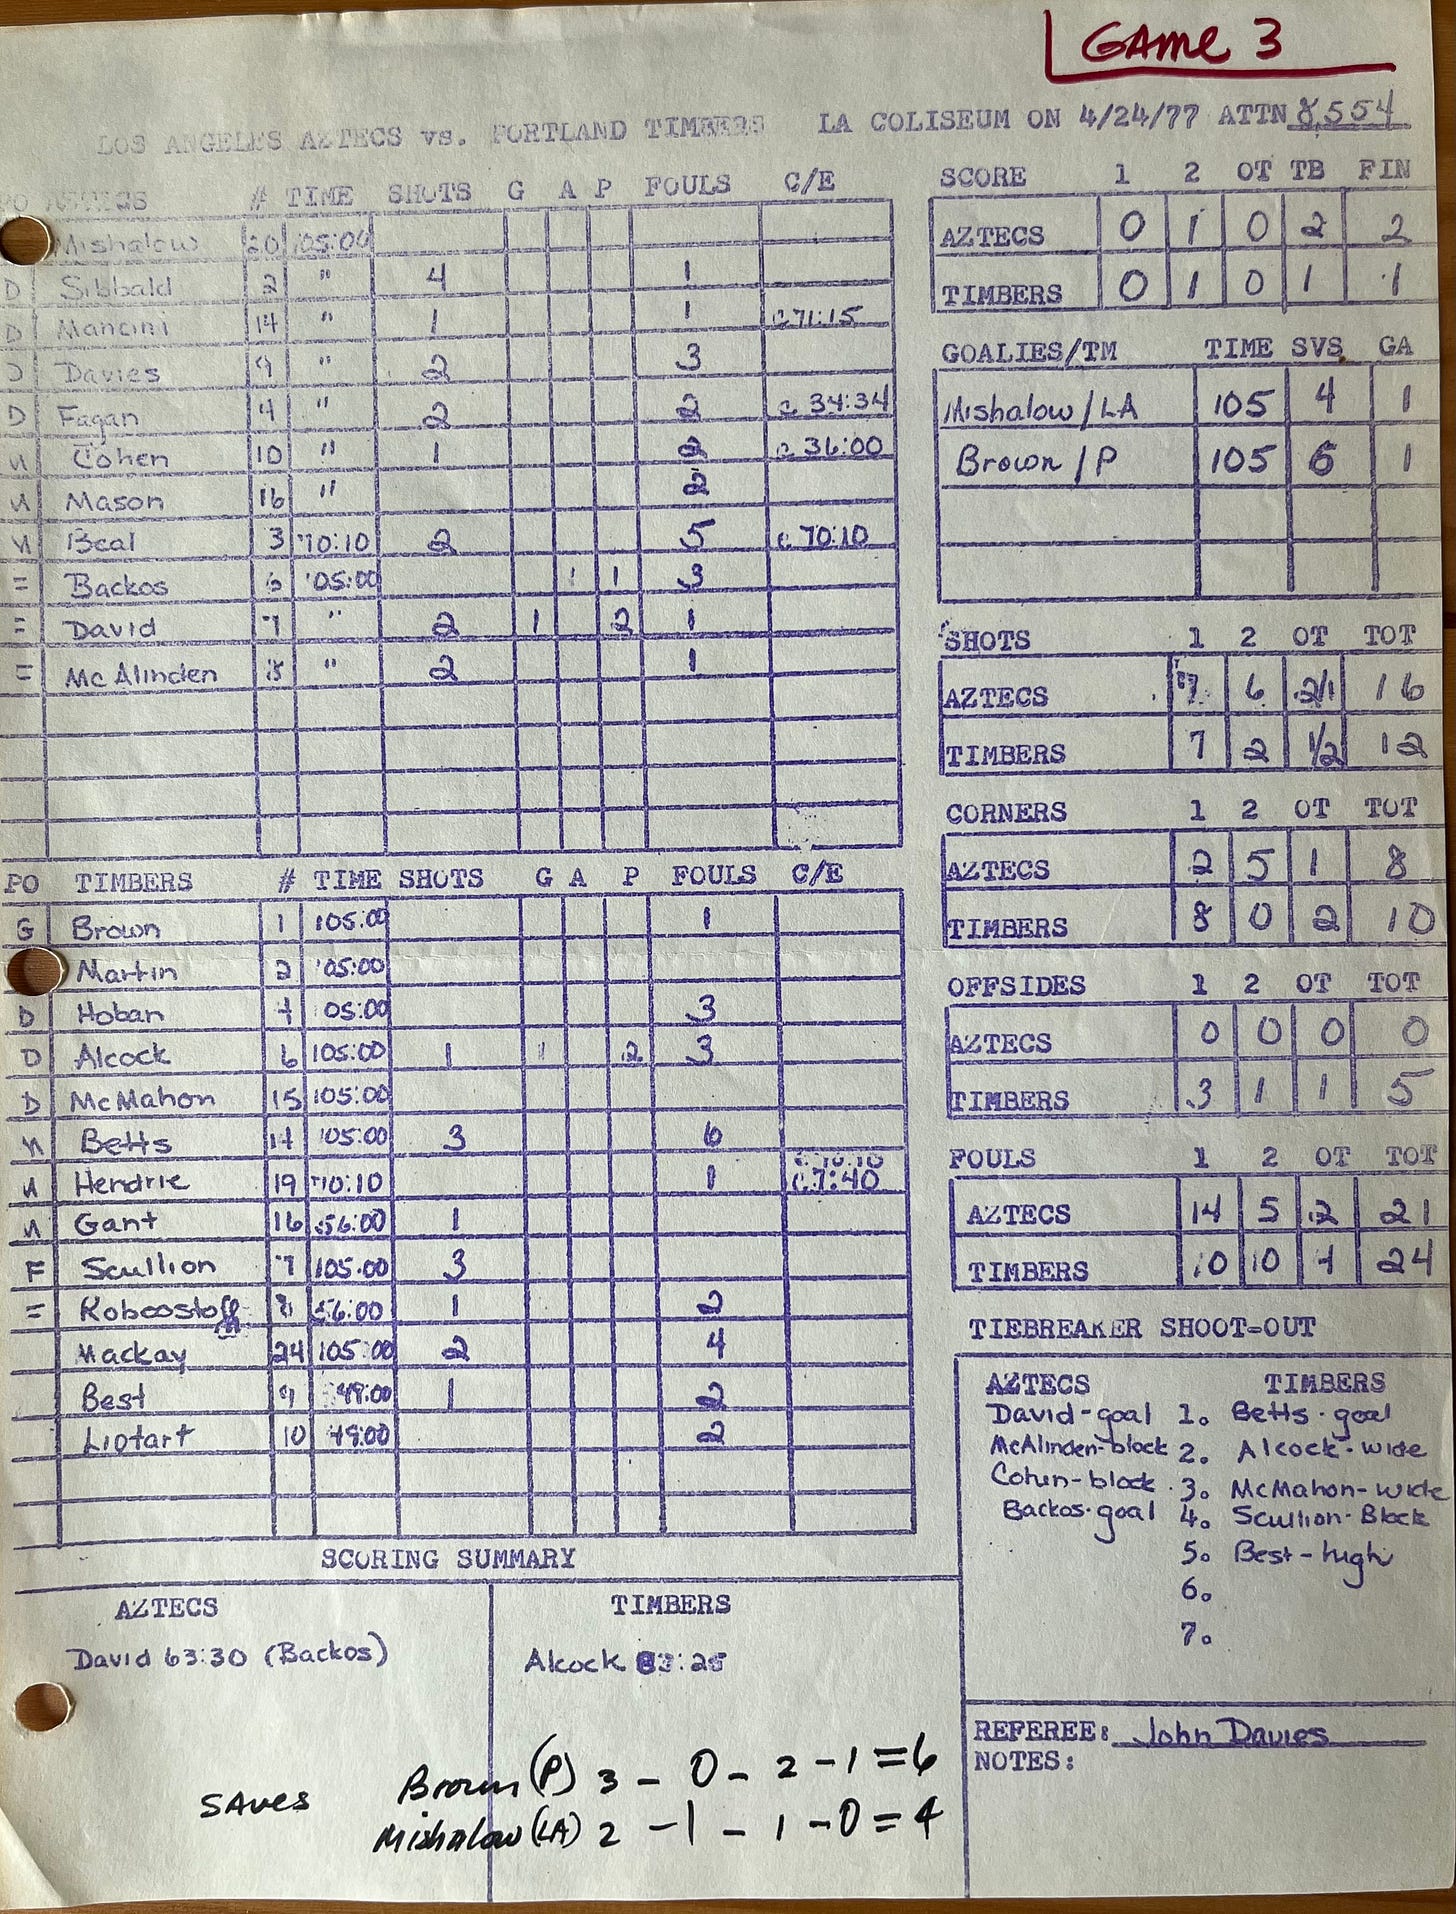 GAME 3
LOS ANGELES AZTECS vs. PORTLAND TIMBERS LA COLISEUM ON 4/24/77 ATTN 8,554
PO # TIME SHOTS G A P FOULS C/E
Mishalow 20 105:00
D Sibbald 2 " 4 1
D Mancini 14 " 1 1 c 71:15
D Davies 9 " 2 3
D Fagan 4 " 2 2 c 34:34
M Cohen 10 " 1 2 c 36:00
M Mason 16 " 2
M Beal 3 70:10 2 5 c 70:10
F Backos 6 105:00 1 1 3
F David 7 " 2 1 2 1
F McAlinden " 2 1
PO TIMBERS # TIME SHOTS G A P FOULS C/E
G Brown 1 105:00 1
Martin 2 105:00
D Hoban 4 105:00 3
D Alcock 6 105:00 1 1 2 3
D McMahon 15 105:00
M Betts 14 105:00 3 6
M Hendrie 19 70:10 1 c 70:10 c 7:40
M Gant 16 56:00 1
F Scullion 7 105:00 3
F 56:00 1 2
Mackay 24 105:00 2 4
Best 9 49:00 1 2
Liotart 10 49:00 2
SCORING SUMMARY
AZTECS TIMBERS
David 63:30 (Backos) Alcock 83:25
SAVES Brown (P) 3 - 0 - 2 - 1 = 6
Mishalow (LA) 2 - 1 - 1 - 0 = 4
SCORE 1 2 OT TB FIN
AZTECS 0 1 0 2 2
TIMBERS 0 1 0 1 1
GOALIES/TM TIME SVS GA
Mishalow/LA 105 4 1
Brown/P 105 6 1
SHOTS 1 2 OT TOT
AZTECS 7 6 2/1 16
TIMBERS 7 2 1/2 12
CORNERS 1 2 OT TOT
AZTECS 2 5 1 8
TIMBERS 8 0 2 10
OFFSIDES 1 2 OT TOT
AZTECS 0 0 0 0
TIMBERS 3 1 1 5
FOULS 1 2 OT TOT
AZTECS 14 5 2 21
TIMBERS 10 10 4 24
TIEBREAKER SHOOT-OUT
AZTECS TIMBERS
David-goal 1. Betts-goal
McAlinden-block 2. Alcock-wide
Cohen-block 3. McMahon-wide
Backos-goal 4. Scullion-Block
5. Best-high
6.
7.
REFEREE: John Davies
NOTES: